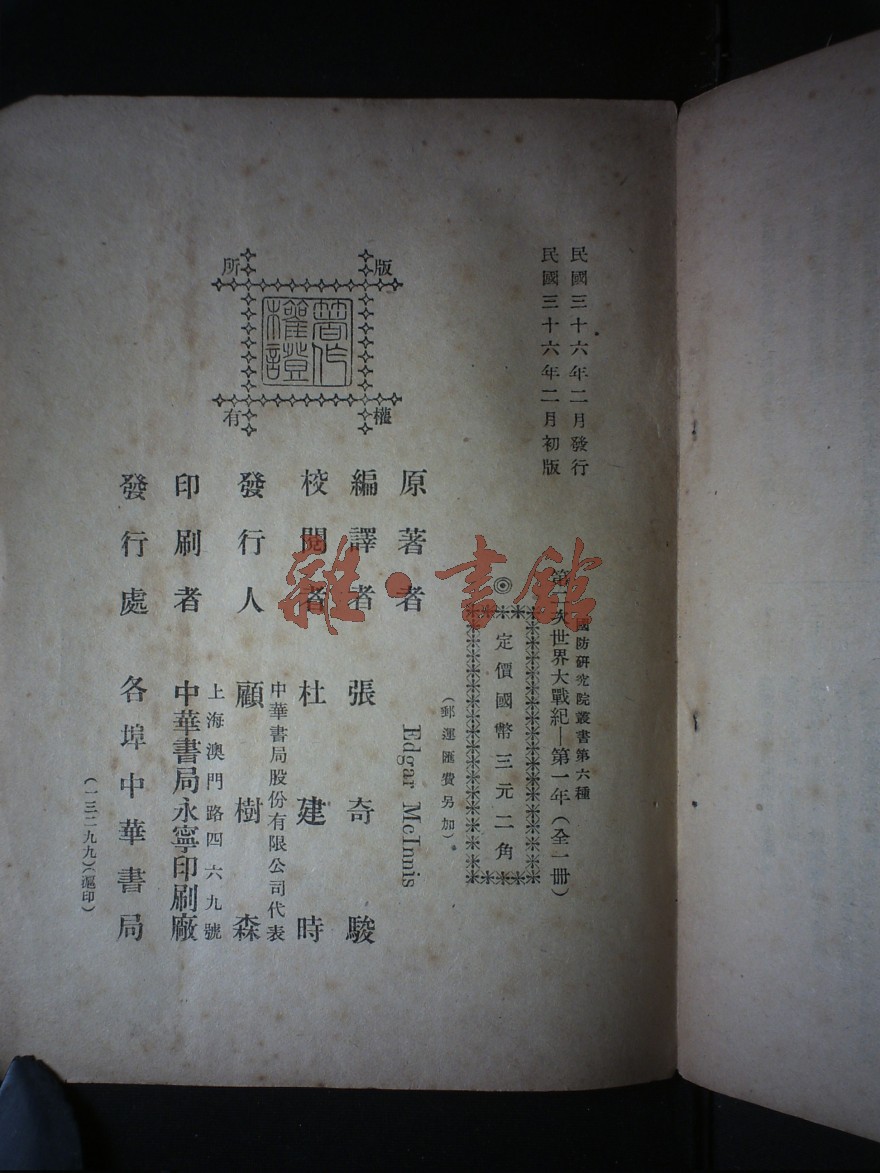 民國三十六年二月發行
民國三十六年二月初版
國防研究院叢書第六種
第二次世界大戰紀—第一年(全一冊)
◎定價國幣三元二角
(郵運匯費另加)
原著者 Edgar McInnis
編譯者 張奇駿
校閱者 杜建時
中華書局股份有限公司代表
發行人 顧樹森
上海澳門路四六九號
印刷者 中華書局永寧印刷廠
發行處 各埠中華書局
(一三二九九)(滬印)
版權所有
著作權證
雜·書館